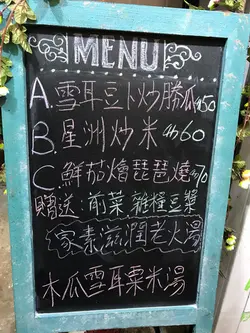 MENU
A.雪耳豆卜炒勝瓜 $50
B.星洲炒米 $60
C.鮮茄燴琵琶燒 $70
贈送:前菜 雜糧豆漿
家素滋潤老火湯
木瓜雪耳粟米湯